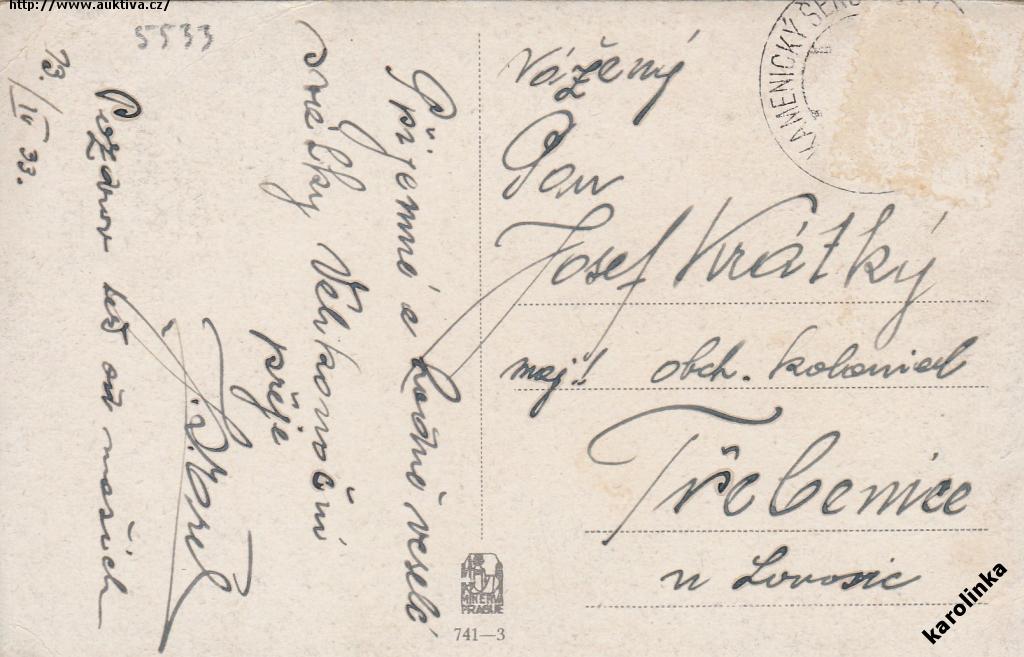 http://www.auktiva.cz/
5533
13./IV 33.
Příjemné a hodně veselé
svátky Velikonoční
přeje
Pozdrav též od našich
Vážený
Pan
Josef Krátký
maj. obch. koloniál
Třebenice
u Lovosic
KAMENICKÝ ŠENO
MINERVA
PRAGUE
741—3
karolinka